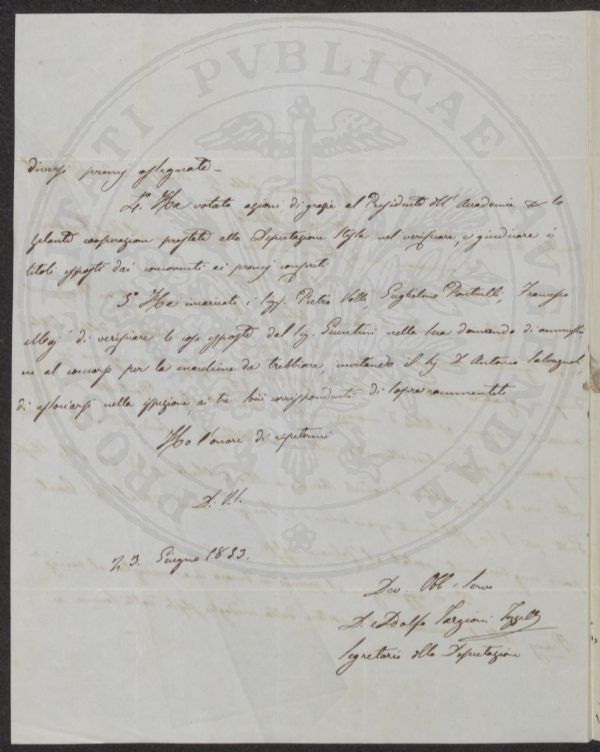 diversi premj assegnati.
4.º Ha votato azioni di grazie al Presidente dell' Accademia per la
zelante cooperazione prestata alla Deputazione stessa nel verificare, e giudicare i
titoli esposti dai concorrenti ai premj conferiti
5.º Ha incaricati i Sigg. Pietro Guglielmo Francesco
di verificare le cose esposte dal Sig. nella sua domanda di ammissio
ne al concorso per la macchina da trebbiare, invitando il Sig. D. Antonio Salvagnoli
di associarsi nella ispezione, ai tre suoi corrispondenti di sopra rammentati
Ho l'onore di ripetermi
D. V. S.
23. Giugno 1853.
Dev. Obb. Servo
D. Adolfo Targioni Tozzetti
Segretario della Deputazione
PROSPERITATI PVBLICAE AVGENDAE